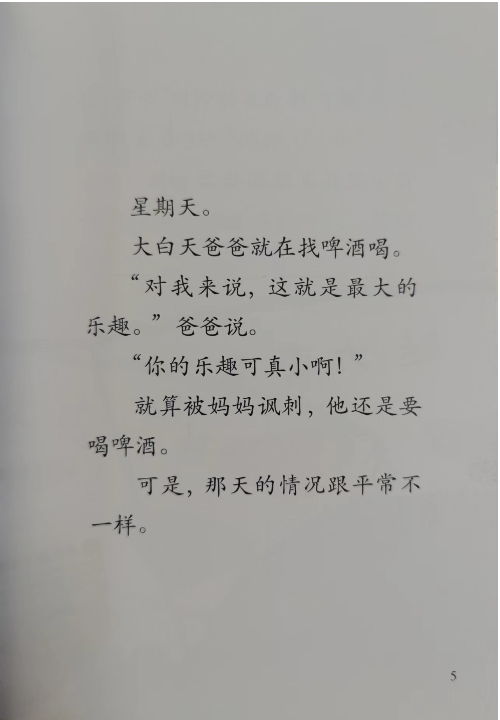 星期天。
大白天爸爸就在找啤酒喝。
“对我来说，这就是最大的
乐趣。”爸爸说。
“你的乐趣可真小啊！”
就算被妈妈讽刺，他还是要
喝啤酒。
可是，那天的情况跟平常不
一样。
5